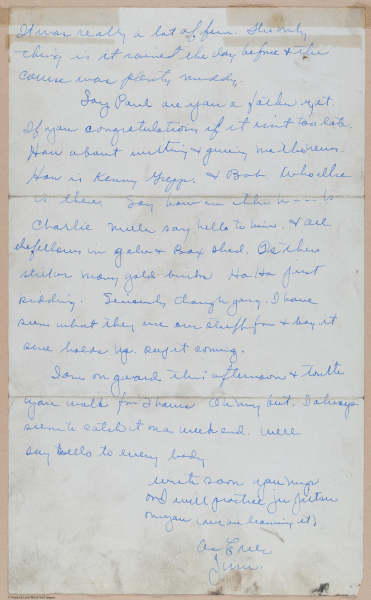 It was really a lot of fun. The only
thing is it rained the day before & the
course was plenty muddy.
Say Paul are you a father yet.
If you congratulations if it isnt too late.
How about writing & giving me the news.
How is Kenny & Bob. Who else
is there. Say how in the h--- is
Charlie say hello to him. & all
the fellows in & Box shed. Is there
still so many gold Ha Ha just
kidding. Sincerely though gang, I have
seen what they use our stuff for & boy it
sure holds up. keep it coming.
I am on guard this afternoon & tonite
you walk for 2 hours Oh my but. I always
seem to catch it on a weekend. Well
say hello to every body
write soon you mugs
or I will practice Jiu Jitsu
on you (we are learning it)
As Ever
Jim.